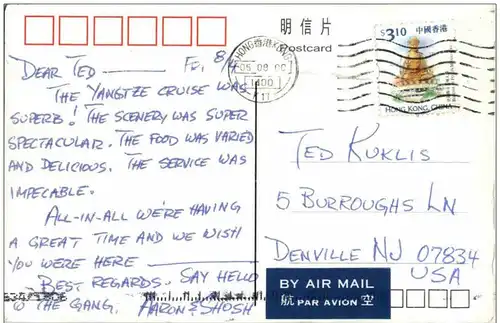 明信片
Postcard
$3.10
中國香港
HONG KONG, CHINA
HONG KONG
1400
11
DEAR TED
THE YANGTZE CRUISE WAS
SUPERB! THE SCENERY WAS SUPER
SPECTACULAR. THE FOOD WAS VARIED
AND DELICIOUS. THE SERVICE WAS
IMPECABLE.
ALL-IN-ALL WE'RE HAVING
A GREAT TIME AND WE WISH
YOU WERE HERE
BEST REGARDS. SAY HELLO
TO THE GANG. AARON & SHOSH
TED KUKLIS
5 BURROUGHS LN
DENVILLE NJ 07834
USA
BY AIR MAIL
航 PAR AVION 空